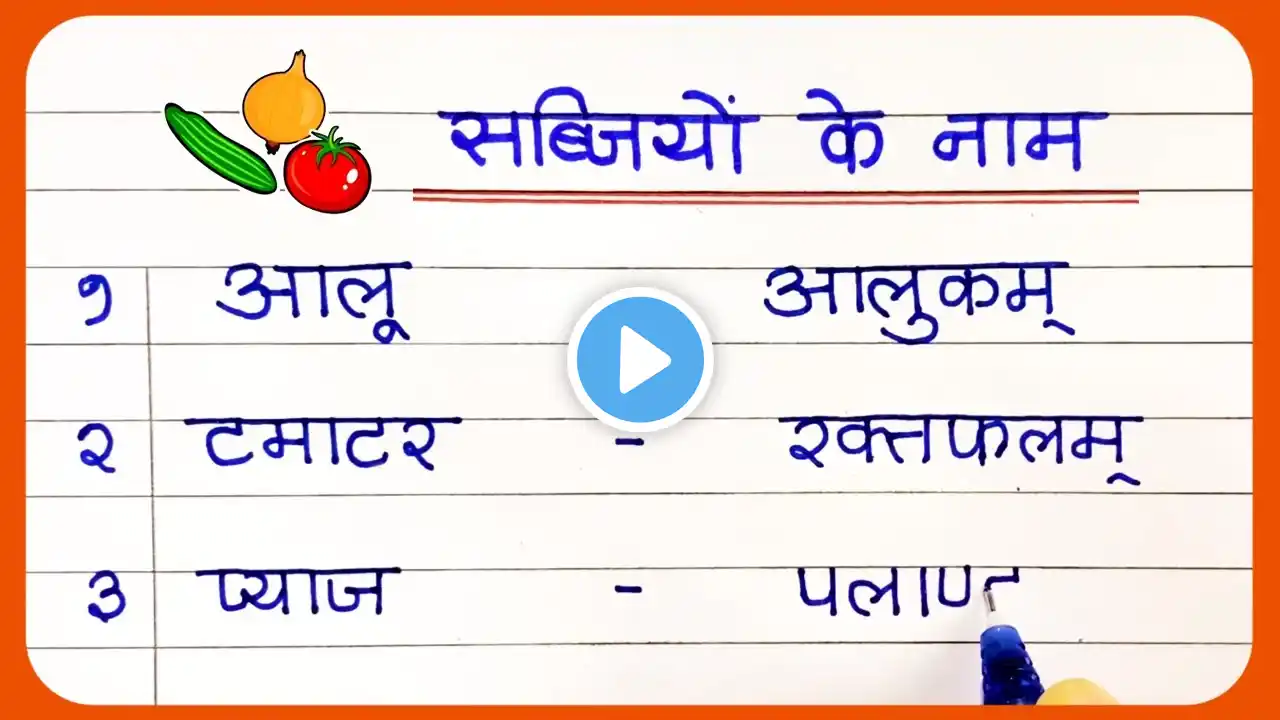 सब्जियों के नाम
१ आलू आलुकम्
२ टमाटर - रक्तफलम्
३ प्याज -